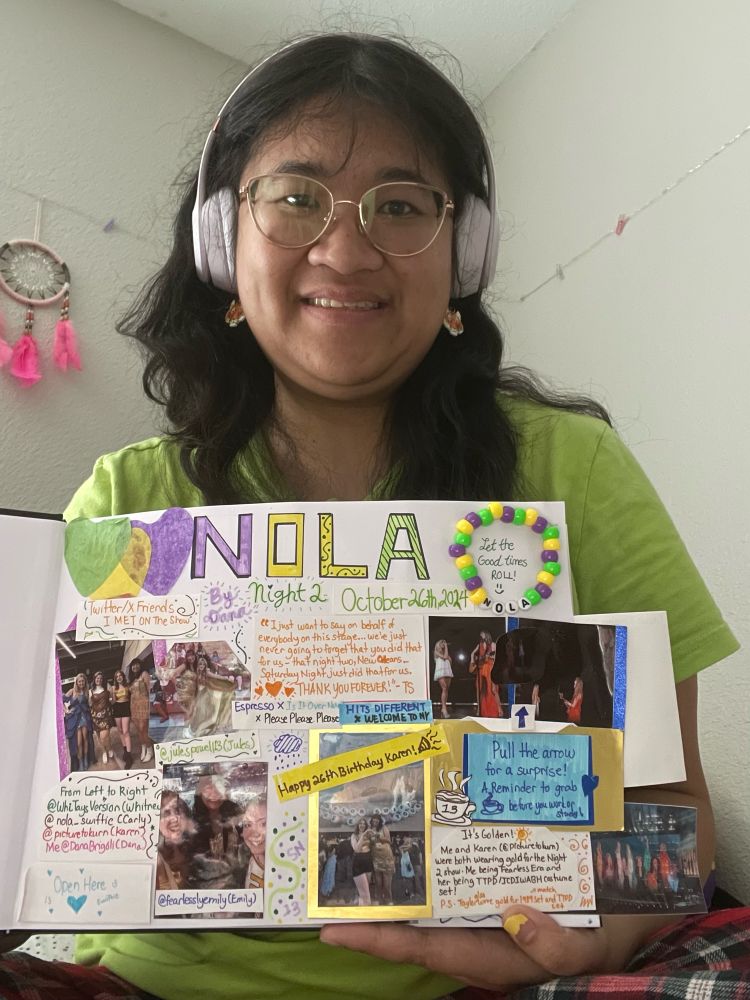 NOLA
By: Dana
Night 2
October 26th, 2024
Let the
Good times
ROLL!
NOLA
Twitter/X Friends
I MET ON The Show
"I just want to say on behalf of
everybody on this stage... we're just
never going to forget that you did that
for us - that night two, New Orleans...
Saturday Night just did that for us.
THANK YOU FOREVER!" - TS
Espresso x Is It Over Now
x Please Please Please
HITS DIFFERENT
x WELCOME TO NY
@julespowell13 (Jules)
Happy 26th Birthday Karen!
Pull the arrow
for a surprise!
A Reminder to grab
before you work or
study!
13
From Left to Right
@WhiTaysVersion (Whitney
@nola_swiftie (Carly)
@picturetoburn (Karen)
Me @DanaBrigoli (Dana)
Open Here
13
@fearlesslyemily (Emily)
SN
13
It's Golden!
Me and Karen (@picturetoburn)
were both wearing gold for the Night
2 show. Me being Fearless Era and
her being TTPD/ICDIWABH costume
set!
P.S. Taylor wore gold for 1989 Set and TTPD
also
match
set